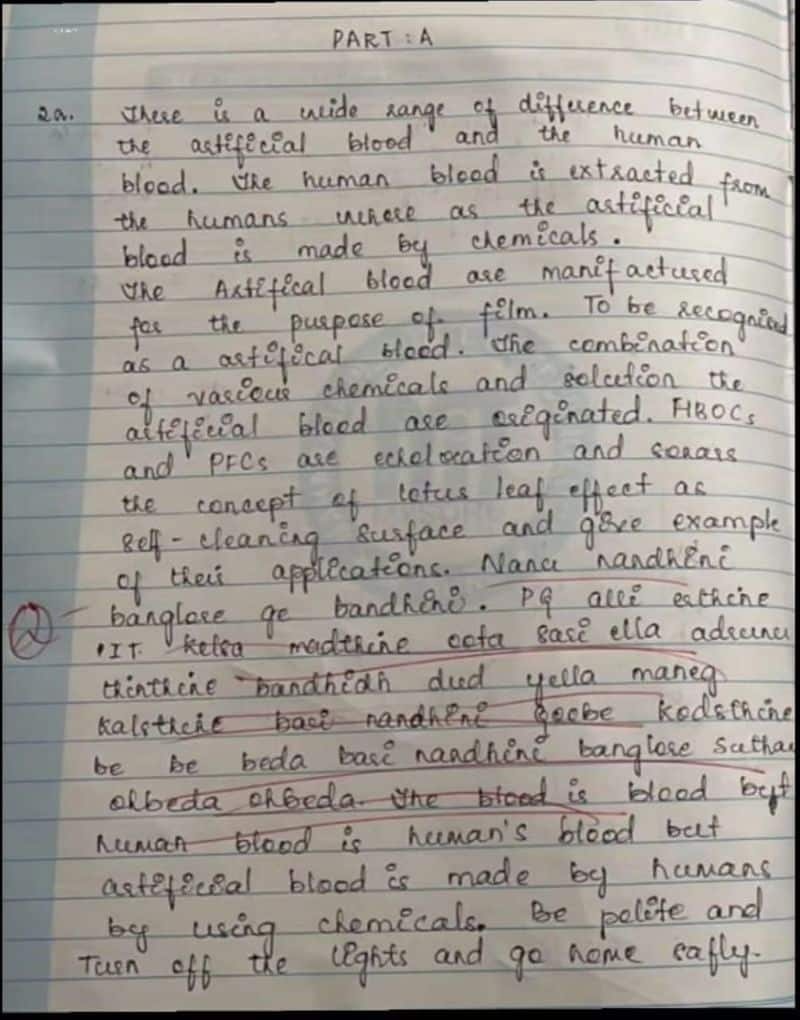 PART : A
2a. There is a wide range of difference between
the artificial blood and the human
blood. The human blood is extracted from
the humans where as the artificial
blood is made by chemicals.
The Artifical blood are manifactured
for the purpose of film. To be recognised
as a artifical blood. The combination
of various chemicals and solution the
artificial blood are originated. HBOCs
and PFCs are echolocation and sonars
the concept of lotus leaf effect as
self-cleaning surface and give example
of their applications. Nanu nandhini
banglore ge bandhini. PG alli irthine
IT kelsa madthine oota gasi ella adrunu
thinthine bandhidh dud yella maneg
kalsthine basi nandhini goobe kodsthine
be be beda basi nandhini banglore suthai
olbeda olbeda. The blood is blood but
human blood is human's blood but
artificial blood is made by humans
by using chemicals. Be polite and
Turn off the lights and go home safly.